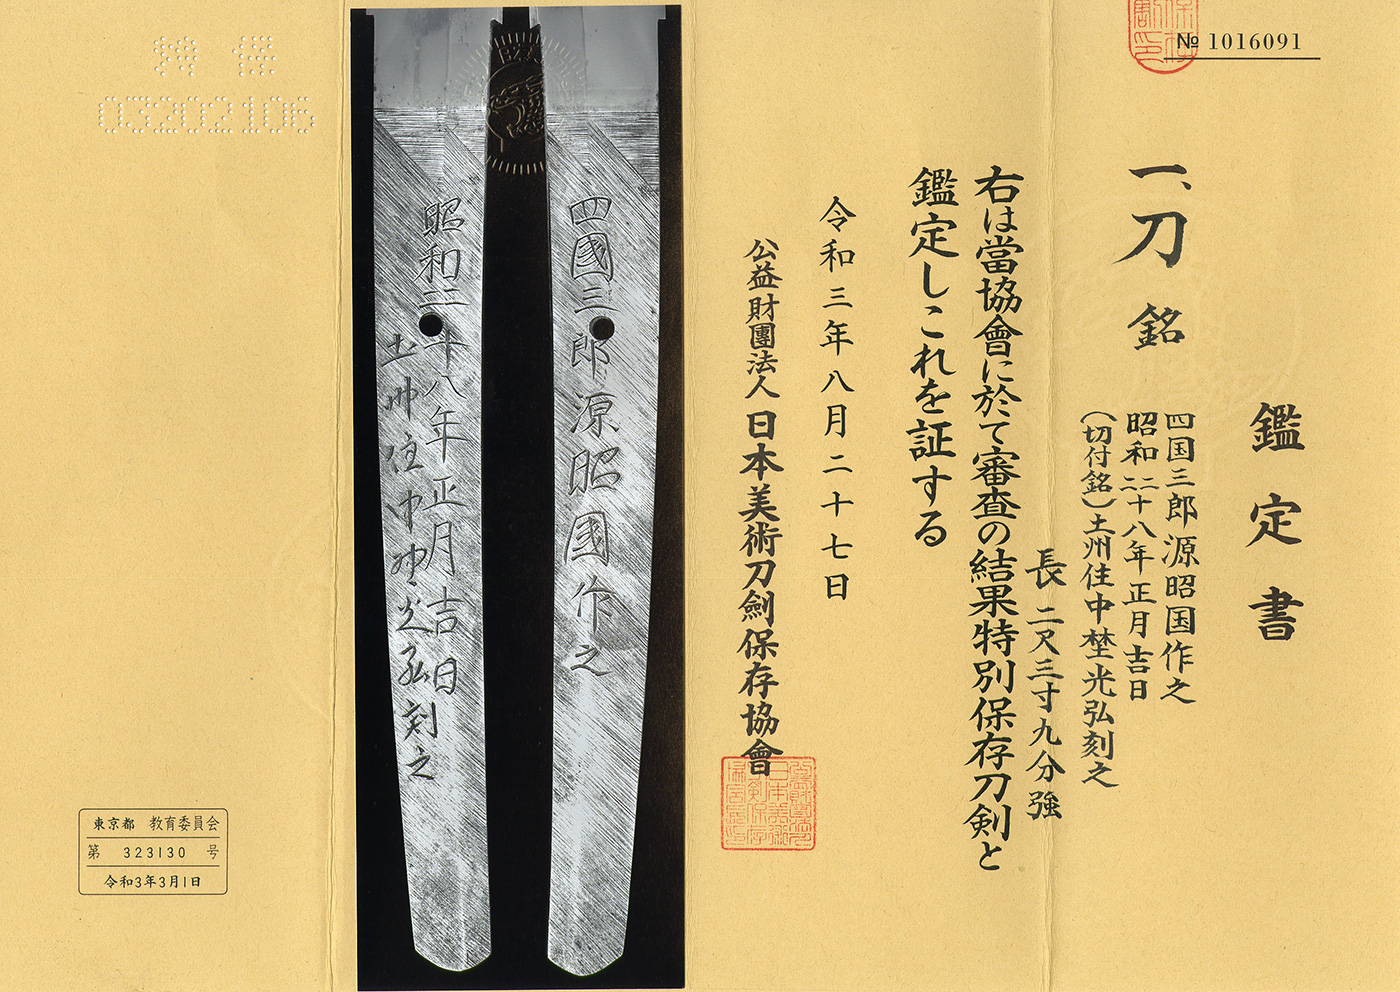 № 1016091
鑑定書
一、刀 銘
四国三郎源昭国作之
昭和二十八年正月吉日
(切付銘)土州住中埜光弘刻之
長 二尺三寸九分強
右は當協會に於て審査の結果特別保存刀剣と
鑑定しこれを証する
令和三年八月二十七日
公益財團法人 日本美術刀劍保存協會
四國三郎源昭國作之
昭和二十八年正月吉日
土州住中埜光弘刻之
保存
03202106
東京都 教育委員会
第 323130 号
令和3年3月1日